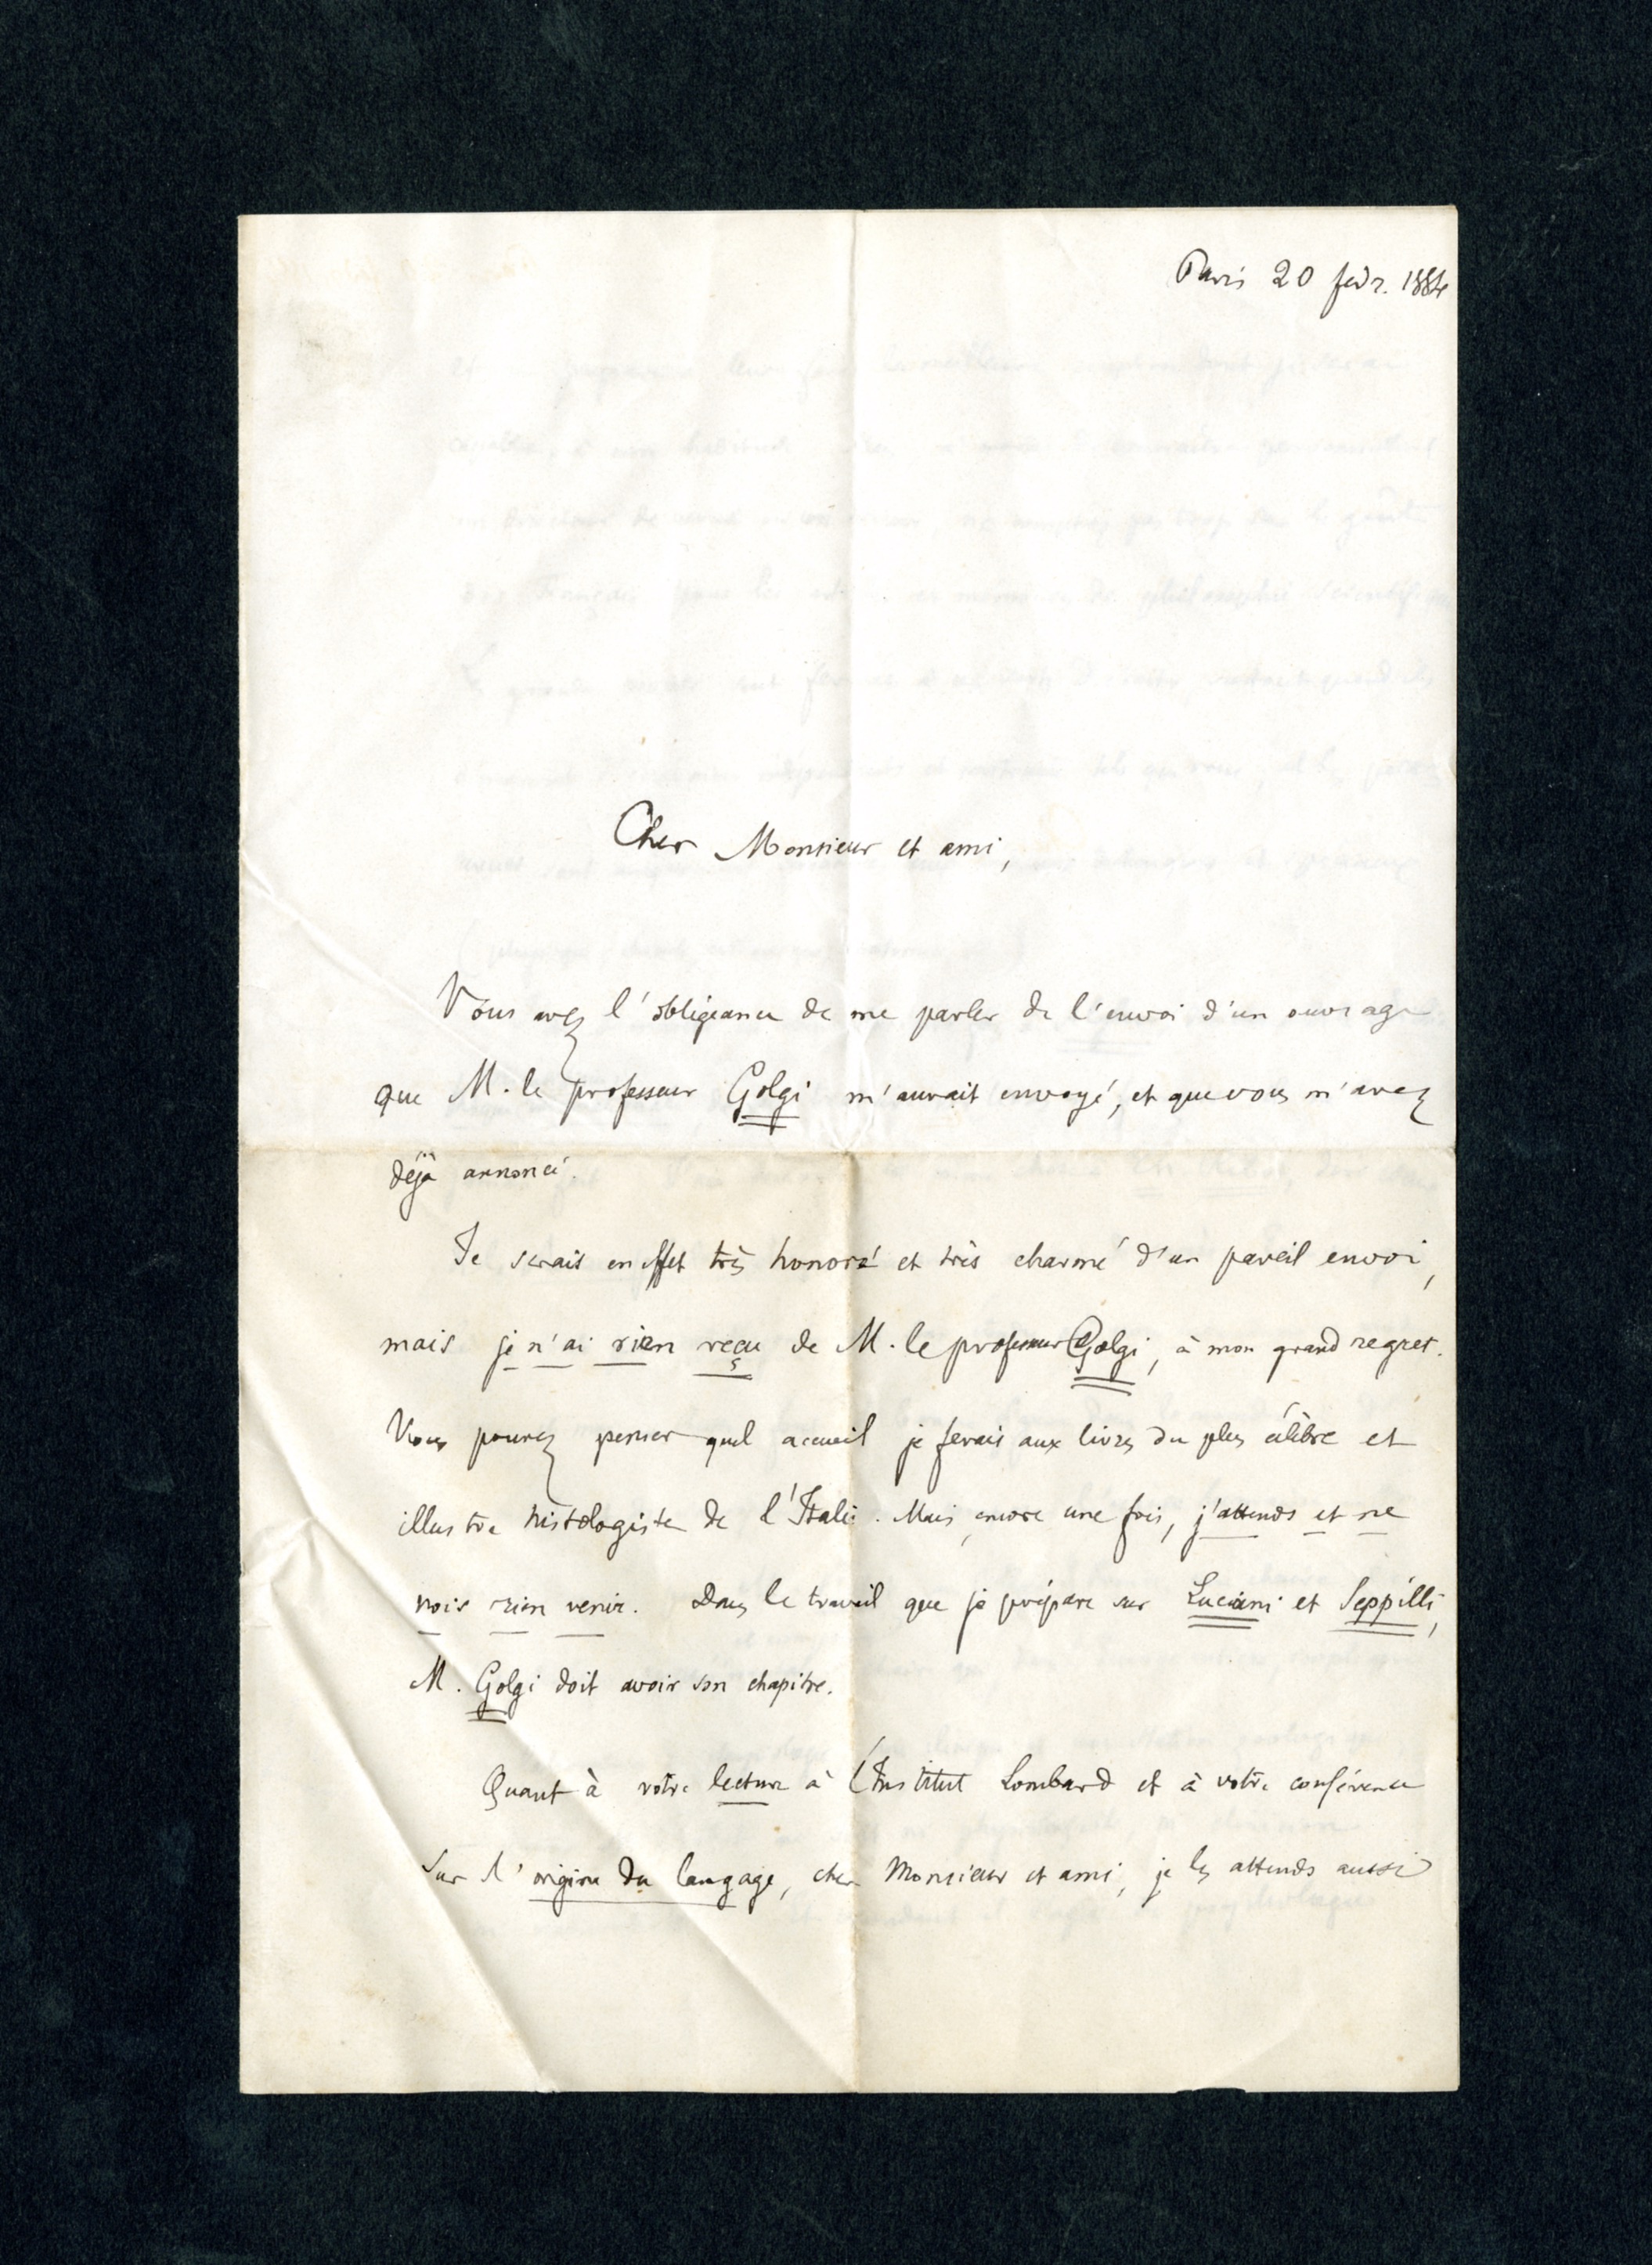 Paris 20 févr. 1884
Cher Monsieur et ami,
Vous avez l'obligeance de me parler de l'envoi d'un ouvrage
que M. le professeur Golgi m'aurait envoyé, et que vous m'avez
déjà annoncé.
Je serais en effet très honoré et très charmé d'un pareil envoi,
mais je n'ai rien reçu de M. le professeur Golgi, à mon grand regret.
Vous pouvez penser quel accueil je ferais aux livres du plus célèbre et
illustre histologiste de l'Italie. Mais, encore une fois, j'attends et ne
vois rien venir. Dans le travail que je prépare sur Luciani et Seppilli,
M. Golgi doit avoir son chapitre.
Quant à votre lecture à l'Institut Lombard et à votre conférence
sur l'origine du langage, cher Monsieur et ami, je les attends aussi